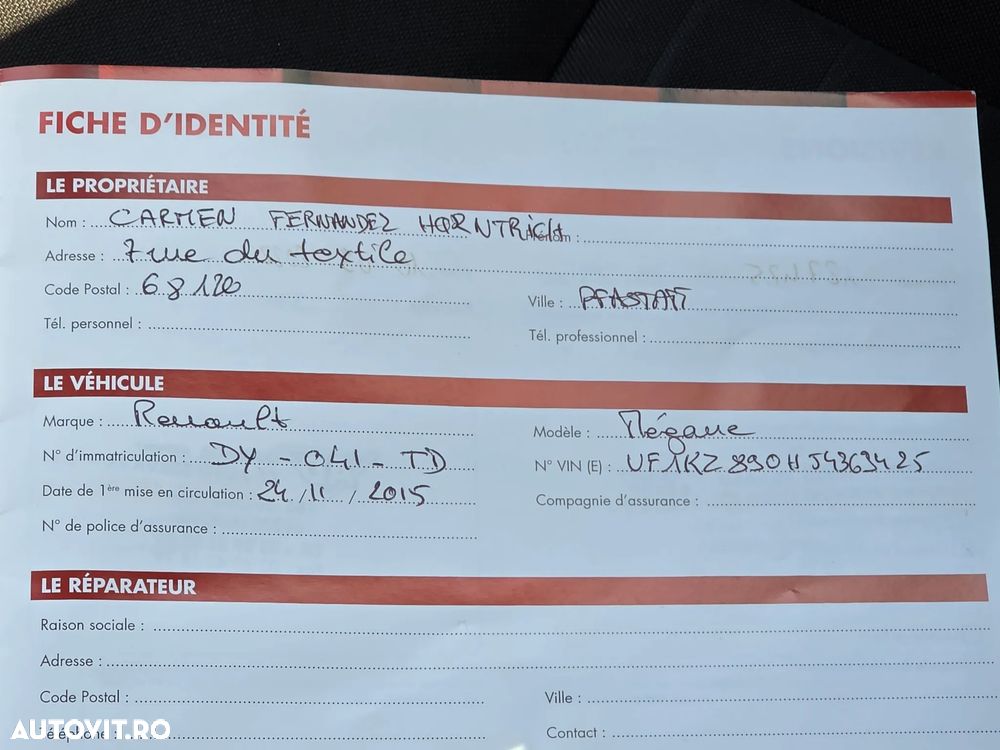 FICHE D'IDENTITÉ
LE PROPRIÉTAIRE
Nom : CARMEN FERNANDEZ HORNTRICH
Adresse : 7 rue du textile
Code Postal : 68120
Ville : PFASTATT
Tél. personnel :
Tél. professionnel :
LE VÉHICULE
Marque : Renault
Modèle : Mégane
N° d'immatriculation : DY - 041 - TD
N° VIN (E) : VF1KZ890H54363425
Date de 1ère mise en circulation : 24 / 11 / 2015
Compagnie d'assurance :
N° de police d'assurance :
LE RÉPARATEUR
Raison sociale :
Adresse :
Code Postal :
Ville :
Téléphone :
Contact :
AUTOVIT.RO